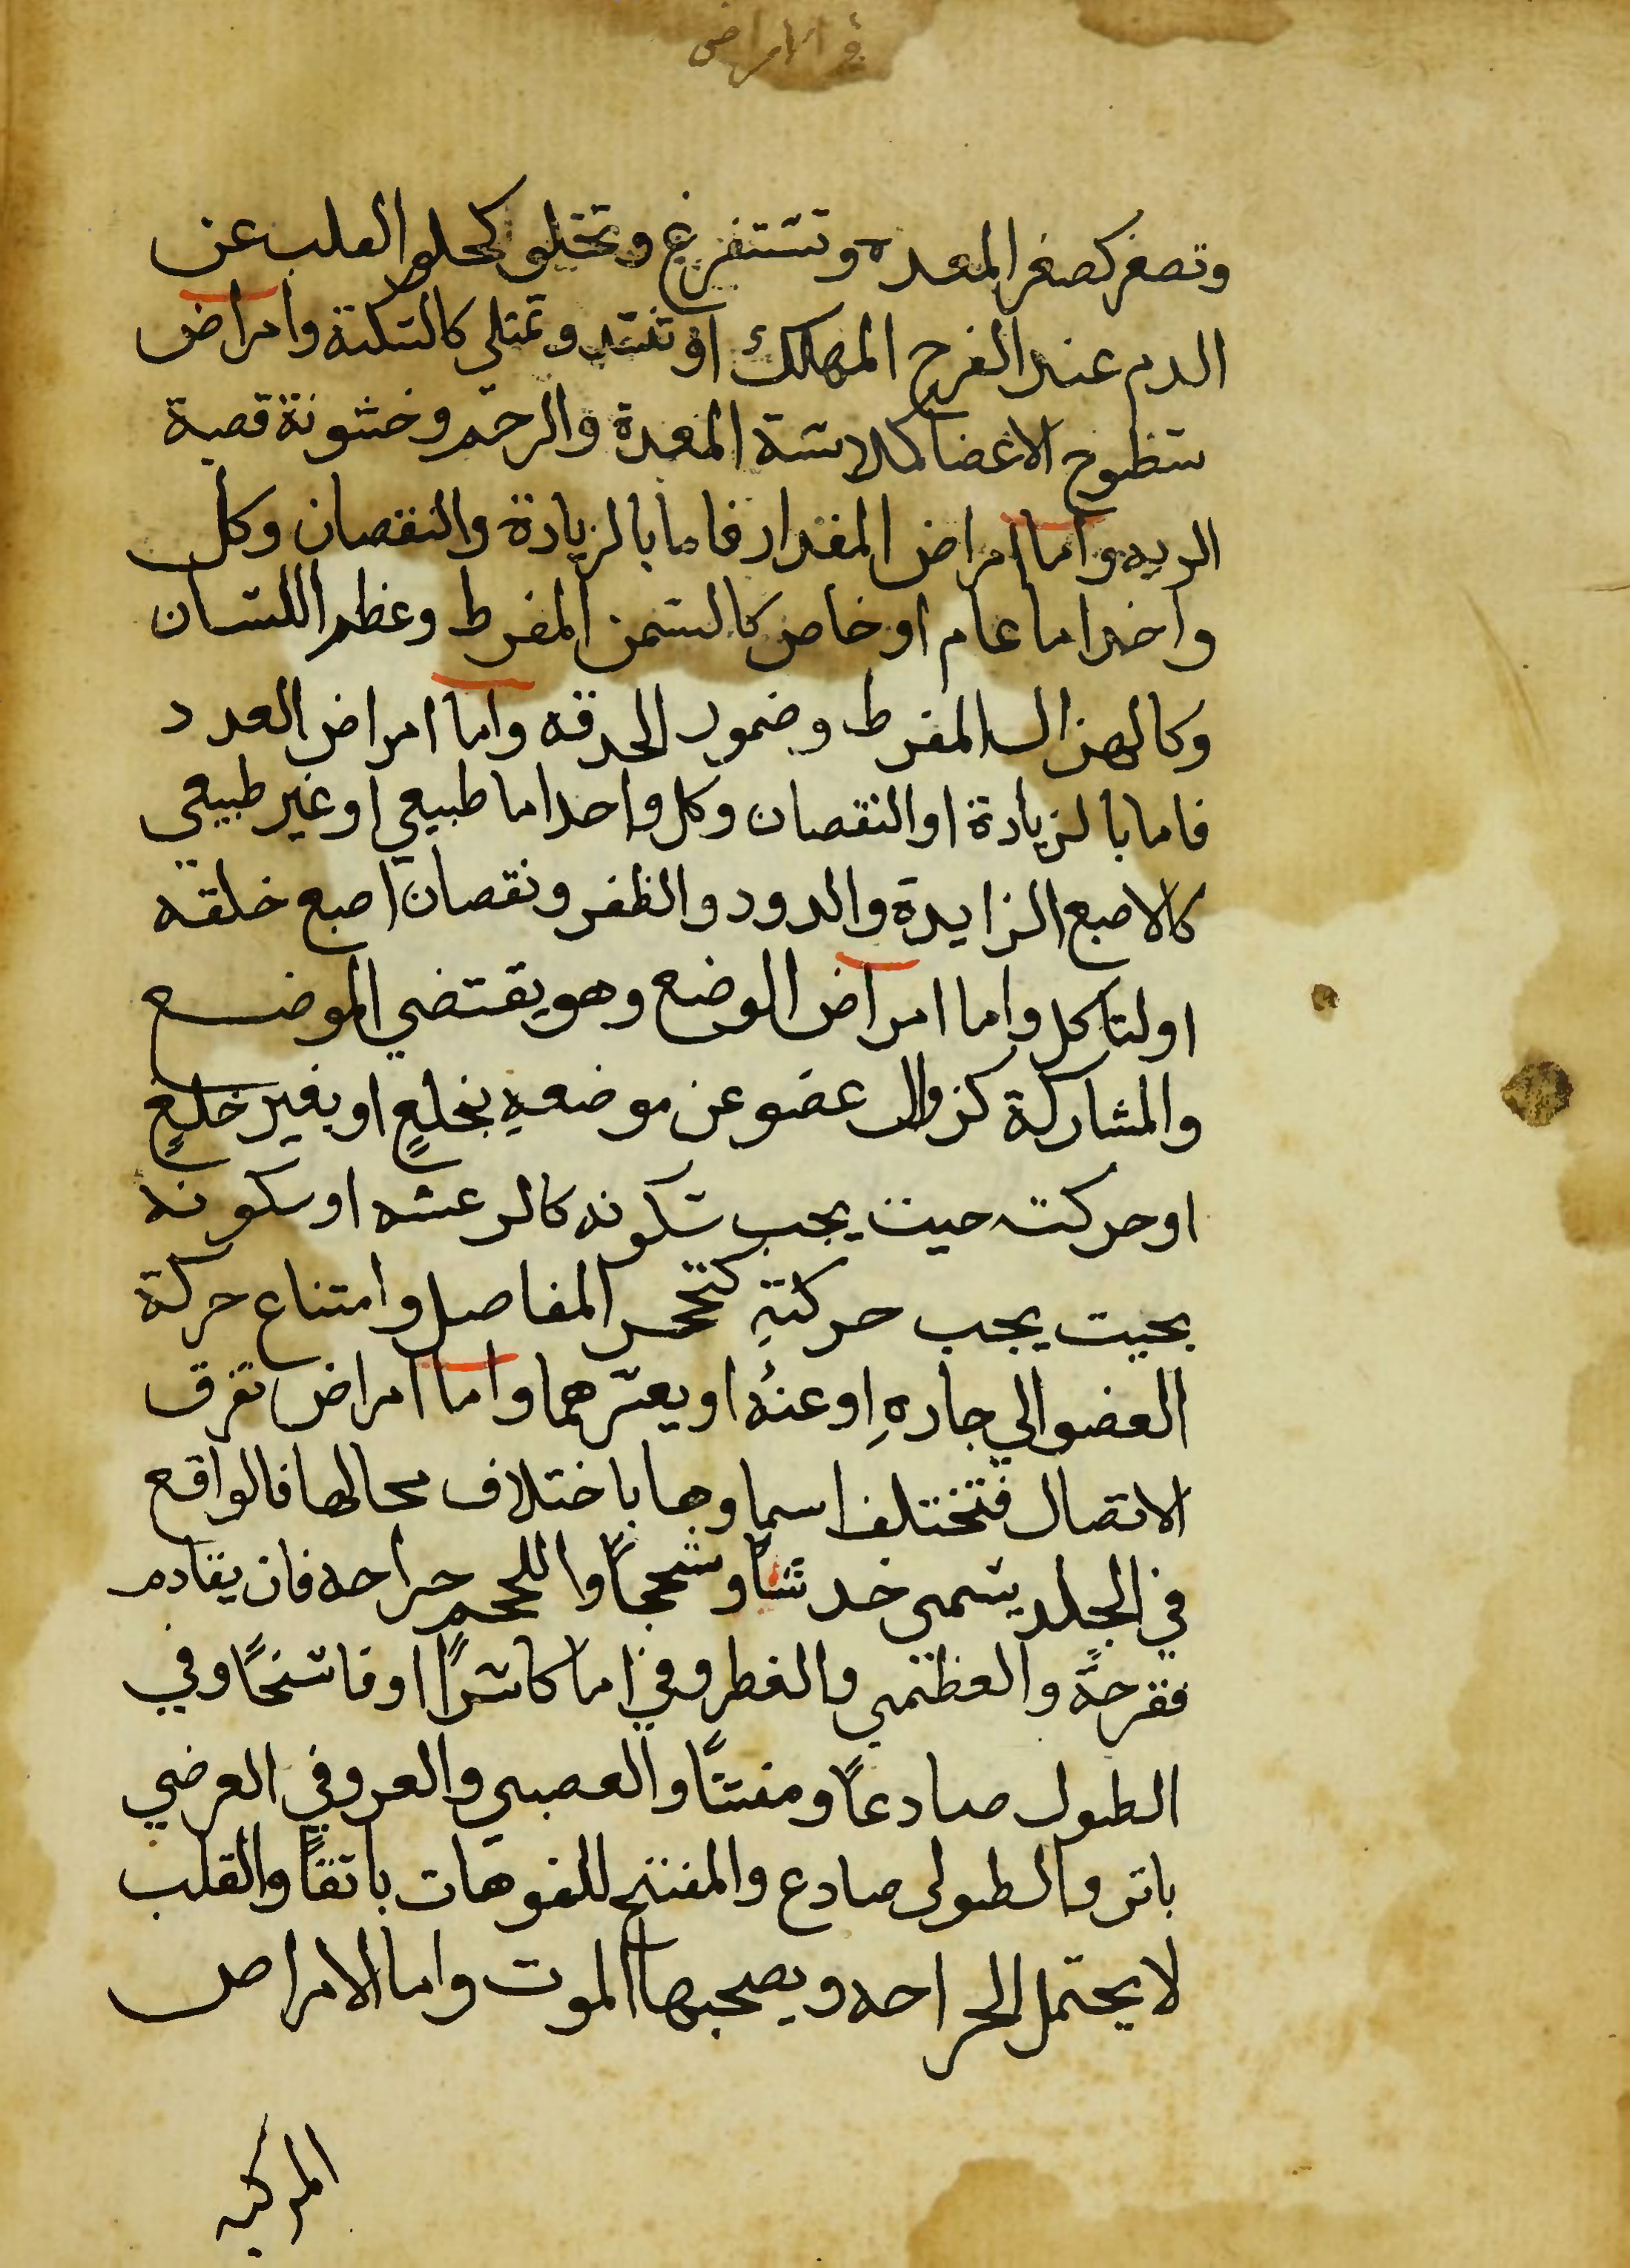 في الامراض
وتصغر كصغر المعده وتستفرغ وتخلو كخلو القلب عن
الدم عند الفرح المهلك او تنسد وتمتلي كالسكتة وامراض
سطوح الاعضا كملاسة المعدة والرحم وخشونة قصبة
الريه واما امراض المقدار فاما بالزيادة والنقصان وكل
واحد اما عام او خاص كالسمن المفرط وعظم اللسان
وكالهزال المفرط وضمور الحدقه واما امراض العدد
فاما بالزيادة او النقصان وكل واحد اما طبيعي او غير طبيعي
كالاصبع الزايدة والدود والظفر ونقصان اصبع خلقه
او لتاكل واما امراض الوضع وهو يقتضي الموضع
والمشاركة كزوال عضو عن موضعهِ بخلعٍ او بغير خلعٍ
او حركته حيث يجب سكونه كالرعشه او سكونه
بحيث يجب حركتهِ كتحجر المفاصل وامتناع حركة
العضو الي جارهِ او عنهُ او يعسرهما واما امراض تفرق
الاتصال فتختلف اسماوها باختلاف محالها فالواقع
في الجلد يسمى خدشاً وسحجاً واللحم جراحه فان يقادم
فقرحةً والعظمي والغطروفي اما كاسراً او فاسخاً وفي
الطول صادعاً ومفتتاً والعصبي والعروفي العرضي
باتر والطولى صادع والمفتح للفوهات باثقاً والقلب
لا يحتمل الجراحه ويصحبها الموت واما الامراض
المركبه